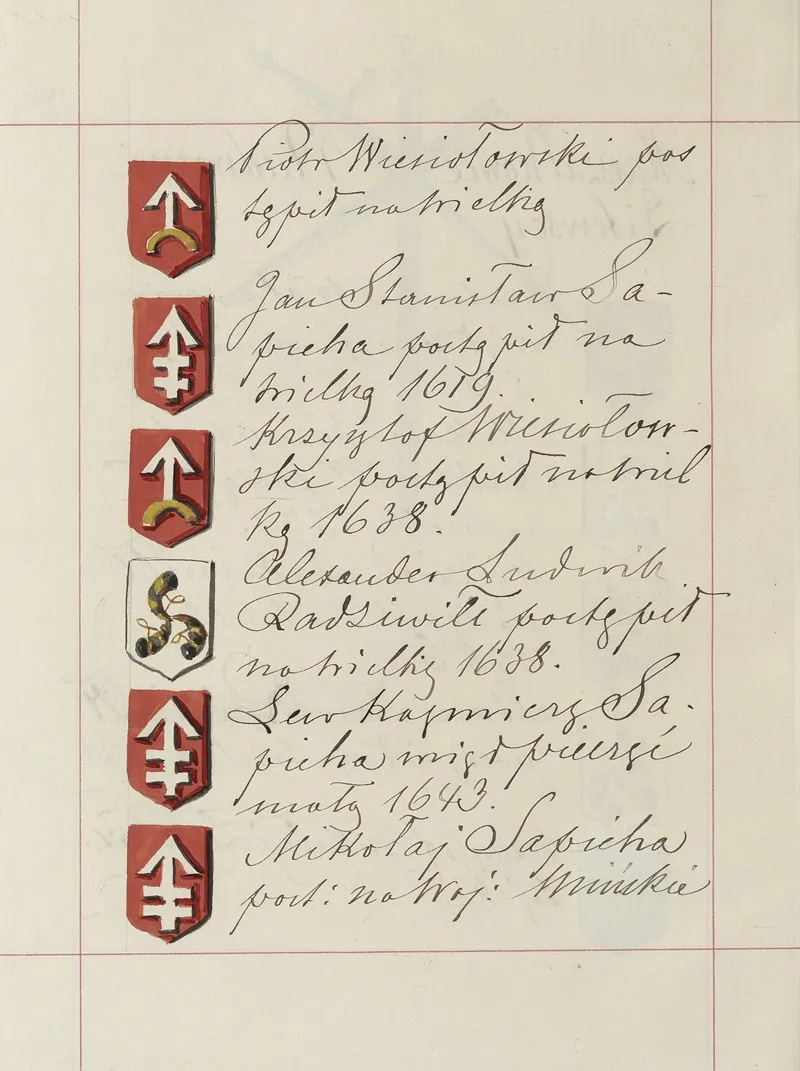 Piotr Wiesiołowski pos
tąpił na wielką
Jan Stanisław Sa-
pieha postąpił na
wielką 1619.
Krzysztof Wiesiołow-
ski postąpił na wiel
ką 1638.
Alexander Ludwik
Radziwiłł postąpił
na wielką 1638.
Lew Kazmierz Sa-
pieha miał pieczęć
małą 1643.
Mikołaj Sapieha
post: na Woj: Mińskie